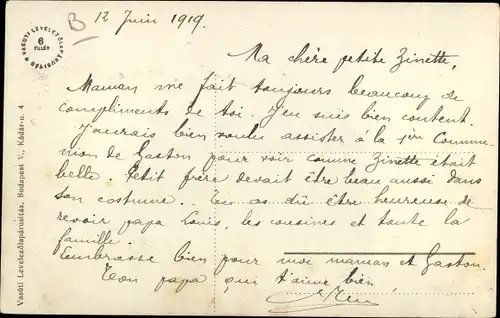 B 12 Juin 1919.
Ma chère petite Zinette,
Maman me fait toujours beaucoup de
compliments de toi. J'en suis bien content.
J'aurais bien voulu assister à la 1ère Commu-
nion de Gaston pour voir comme Zinette était
belle. Petit frère devait être beau aussi dans
son costume. Tu as dû être heureuse de
revoir papa Louis, les cousines et toute la
famille.
Embrasse bien pour moi maman et Gaston.
Ton papa qui t'aime bien,
VASUTI LEVELEZŐLAPÁRUSITÁS
6
FILLÉR
Vasúti Levelezőlapárusitás, Budapest V., Kádár-u. 4